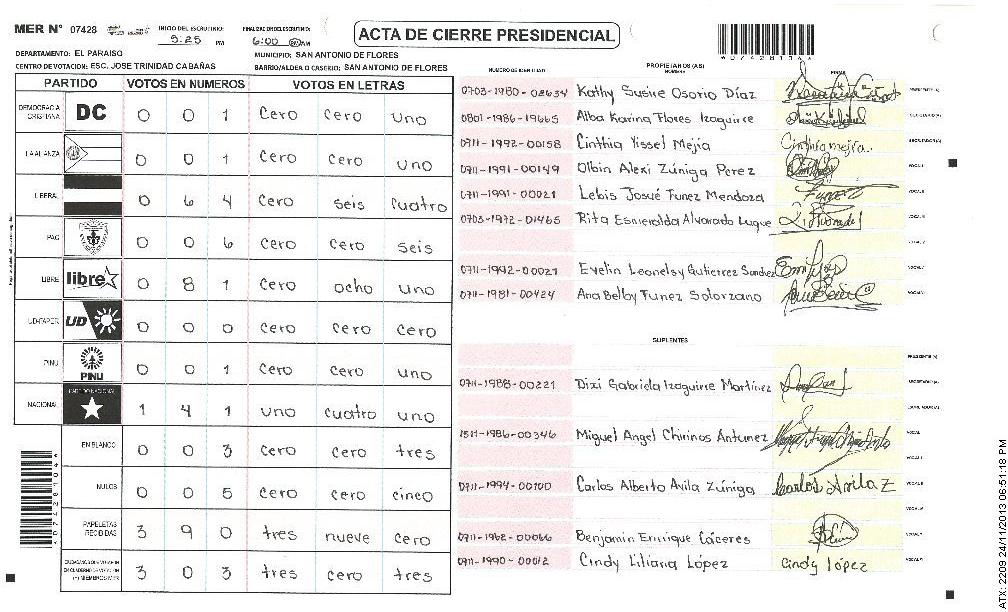 MER N° 07428
INICIO DEL ESCRUTINIO:
5:25 PM
FINALIZACION DEL ESCRUTINIO:
6:00 AM
ACTA DE CIERRE PRESIDENCIAL
DEPARTAMENTO: EL PARAISO
MUNICIPIO: SAN ANTONIO DE FLORES
CENTRO DE VOTACION: ESC. JOSE TRINIDAD CABAÑAS
BARRIO/ALDEA O CASERIO: SAN ANTONIO DE FLORES
PARTIDO VOTOS EN NUMEROS VOTOS EN LETRAS
DEMOCRACIA CRISTIANA DC 0 0 1 cero cero uno
LA ALIANZA 0 0 1 cero cero uno
LIBERAL 0 6 4 cero seis cuatro
PAC 0 0 6 cero cero seis
LIBRE libre 0 8 1 cero ocho uno
UD-FAPER UD 0 0 0 cero cero cero
PINU PINU 0 0 1 cero cero uno
NACIONAL 1 4 1 uno cuatro uno
EN BLANCO 0 0 3 cero cero tres
NULOS 0 0 5 cero cero cinco
PAPELETAS RECIBIDAS 3 9 0 tres nueve cero
3 0 3 tres cero tres
NUMERO DE IDENTIDAD PROPIETARIOS (AS) NOMBRE FIRMA
0703-1980-02634 Kathy Susire Osorio Díaz
0801-1986-19665 Alba Karina Flores Izaguirre
0711-1992-00158 Cinthia Yissel Mejía Cinthia mejia.
0711-1991-00149 Olbin Alexi Zúniga Perez
0711-1991-00021 Lebis Josué Funez Mendoza
0703-1972-01465 Rita Esmeralda Alvarado Luque
0711-1992-00021 Evelin Leonelsy Gutierrez Sanchez
0711-1981-00424 Ana Belby Funez Solorzano
SUPLENTES
0711-1988-00221 Dixi Gabriela Izaguirre Martínez
1511-1986-00346 Miguel Angel Chirinos Antunez
0711-1994-00100 Carlos Alberto Avila Zúniga Carlos Avila Z
0711-1962-00066 Benjamin Enrrique Cáceres
0711-1990-00012 Cindy Liliana López Cindy lópez
ATX: 2209 24/11/2013 06:51:18 PM